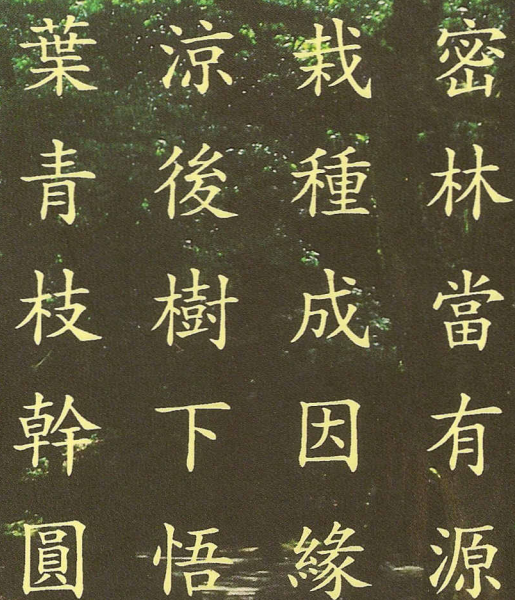 密林當有源
栽種成因緣
涼後樹下悟
葉青枝幹圓